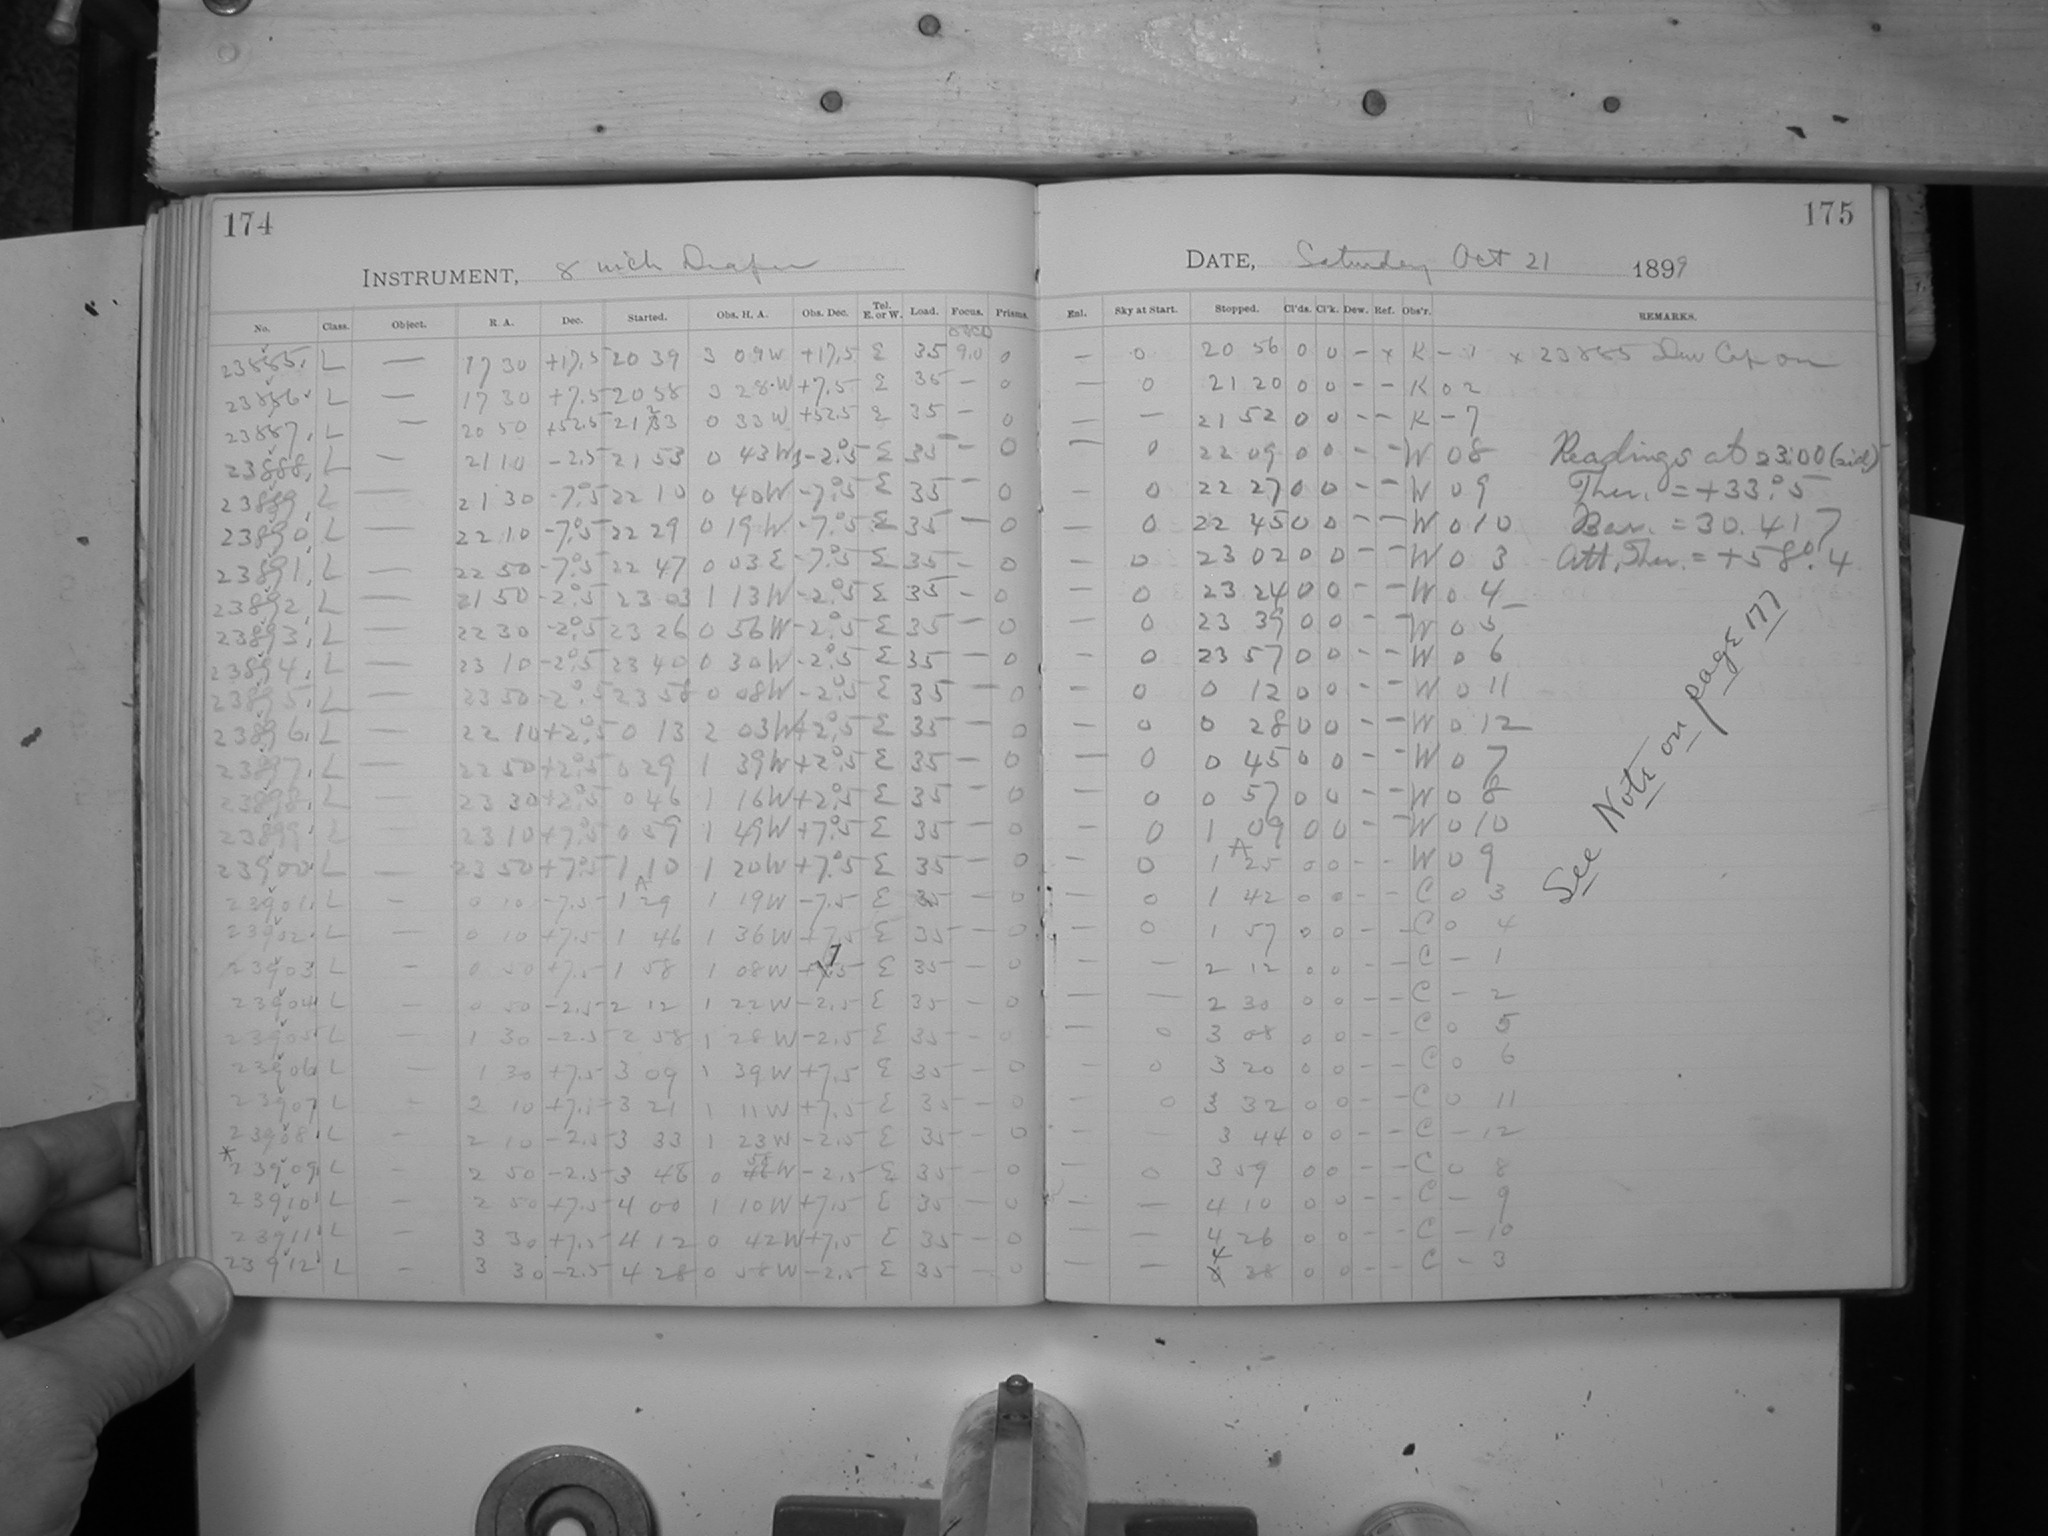 174
INSTRUMENT, 8 inch Draper
No. Class. Object. R. A. Dec. Started. Obs. H. A. Obs. Dec. Tel. E. or W. Load. Focus. Prisms.
23885. L — 17 30 +17.5 20 39 3 09 W +17.5 E 35 9.0 0
23886. L — 17 30 +7.5 20 58 3 28 W +7.5 E 35 — 0
23887. L — 20 50 +52.5 21 23 0 33 W +52.5 E 35 — 0
23888. L — 21 10 -2.5 21 53 0 43 W -2°.5 E 35 — 0
23889. L — 21 30 -7°.5 22 10 0 40 W -7°.5 E 35 — 0
23890. L — 22 10 -7°.5 22 29 0 19 W -7°.5 E 35 — 0
23891. L — 22 50 -7°.5 22 47 0 03 E -7°.5 E 35 — 0
23892. L — 21 50 -2°.5 23 03 1 13 W -2°.5 E 35 — 0
23893. L — 22 30 -2°.5 23 26 0 56 W -2°.5 E 35 — 0
23894. L — 23 10 -2°.5 23 40 0 30 W -2°.5 E 35 — 0
23895. L — 23 50 -2°.5 23 58 0 08 W -2°.5 E 35 — 0
23896. L — 22 10 +2°.5 0 13 2 03 W +2°.5 E 35 — 0
23897. L — 22 50 +2°.5 0 29 1 39 W +2°.5 E 35 — 0
23898. L — 23 30 +2°.5 0 46 1 16 W +2°.5 E 35 — 0
23899. L — 23 10 +7°.5 0 59 1 49 W +7°.5 E 35 — 0
23900. L — 23 50 +7°.5 1 10 1 20 W +7°.5 E 35 — 0
23901. L — 0 10 -7.5 1 29 1 19 W -7.5 E 35 — 0
23902. L — 0 10 +7.5 1 46 1 36 W +7.5 E 35 — 0
23903 L — 0 50 +7.5 1 58 1 08 W +7.5 E 35 — 0
23904 L — 0 50 -2.5 2 12 1 22 W -2.5 E 35 — 0
23905 L — 1 30 -2.5 2 58 1 28 W -2.5 E 35 — 0
23906 L — 1 30 +7.5 3 09 1 39 W +7.5 E 35 — 0
23907 L — 2 10 +7.5 3 21 1 11 W +7.5 E 35 — 0
23908. L — 2 10 -2.5 3 33 1 23 W -2.5 E 35 — 0
*23909 L — 2 50 -2.5 3 48 0 58 W -2.5 E 35 — 0
23910 L — 2 50 +7.5 4 00 1 10 W +7.5 E 35 — 0
23911 L — 3 30 +7.5 4 12 0 42 W +7.5 E 35 — 0
23912 L — 3 30 -2.5 4 28 0 58 W -2.5 E 35 — 0
175
DATE, Saturday Oct 21 1899
Enl. Sky at Start. Stopped. Cl'ds. Cl'k. Dew. Ref. Obs'r. REMARKS.
— 0 20 56 0 0 - x K - 1 x 23885 Dew Cap on
— 0 21 20 0 0 - - K 0 2
— — 21 52 0 0 - - K - 7
— 0 22 09 0 0 - - W 0 8 Readings at 23:00 (sid)
— 0 22 27 0 0 - - W 0 9 Ther. = +33°.5
— 0 22 45 0 0 - - W 0 10 Bar. = 30.417
— 0 23 02 0 0 - - W 0 3 Att. Ther. = +58°.4
— 0 23 24 0 0 - - W 0 4
— 0 23 39 0 0 - - W 0 5
— 0 23 57 0 0 - - W 0 6
— 0 0 12 0 0 - - W 0 11
— 0 0 28 0 0 - - W 0 12
— 0 0 45 0 0 - - W 0 7
— 0 0 57 0 0 - - W 0 8
— 0 1 09 0 0 - - W 0 10
— 0 1 25 0 0 - - W 0 9
— 0 1 42 0 0 - - C 0 3
— 0 1 57 0 0 - - C 0 4
— — 2 12 0 0 - - C - 1
— — 2 30 0 0 - - C - 2
— 0 3 08 0 0 - - C 0 5
— 0 3 20 0 0 - - C 0 6
— 0 3 32 0 0 - - C 0 11
— — 3 44 0 0 - - C - 12
— 0 3 59 0 0 - - C 0 8
— — 4 10 0 0 - - C - 9
— — 4 26 0 0 - - C - 10
— — 4 38 0 0 - - C - 3
See Note on page 177